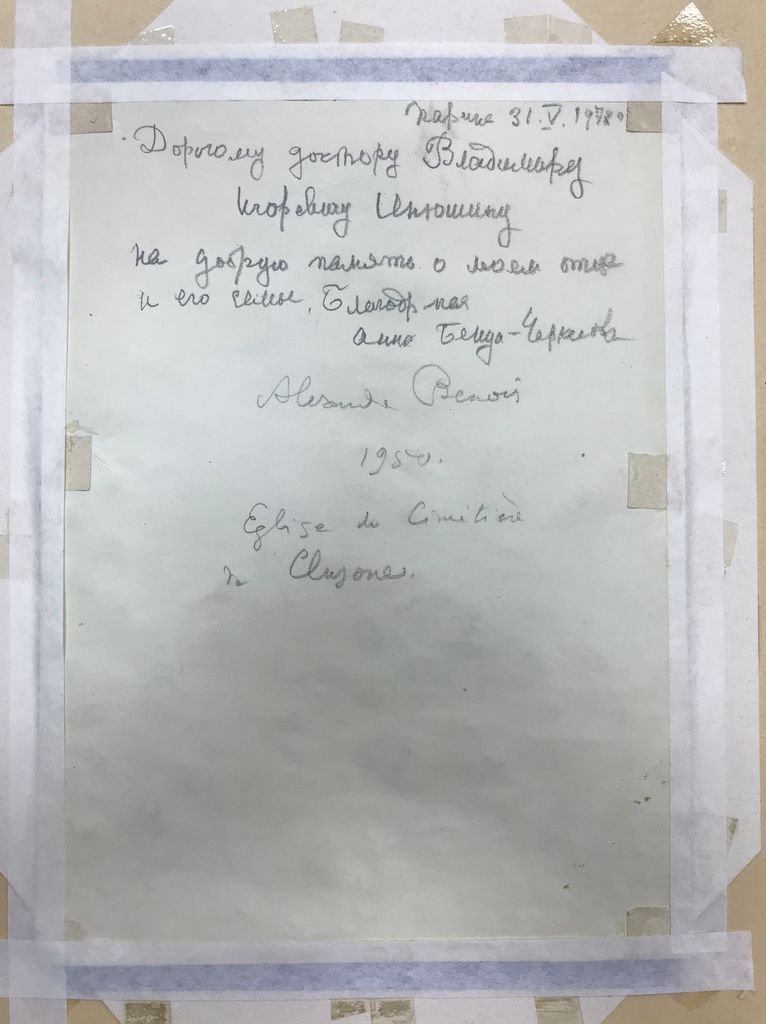 Париж 31.V.1978г
Дорогому доктору Владимиру
Игоревичу Инюшину
на добрую память о моем отце
и его семье, Благодарная
Анна Бенуа-Черкесова
Alexandre Benois
1950.
Eglise du Cimetière
de Clusone.